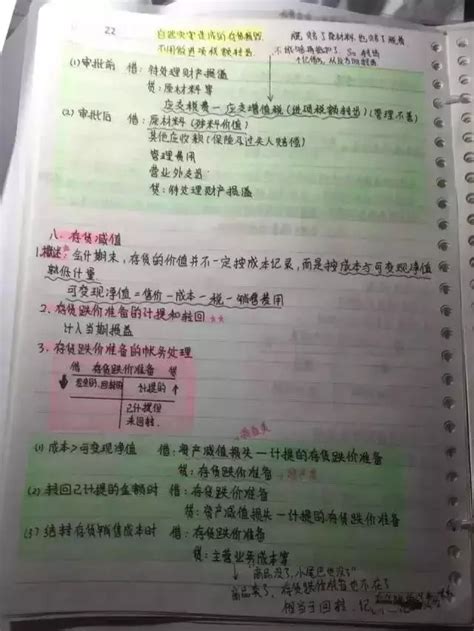 22
自然灾害造成的存货毁损
不用做进项税额转出
(1) 审批前 借：待处理财产损溢
贷：原材料等
应交税费—应交增值税(进项税额转出)(管理不善)
(2) 审批后 借：原材料(残料价值)
其他应收款(保险及过失人赔偿)
管理费用
营业外支出
贷：待处理财产损溢
八、存货减值
1. 概述：会计期末，存货的价值并不一定按成本记录，而是按成本与可变现净值
孰低计量
可变现净值=售价-成本-税-销售费用
2. 存货跌价准备的计提和转回
计入当期损益
3. 存货跌价准备的帐务处理
借 存货跌价准备 贷
计提的
已计提但
未回转
(1) 成本>可变现净值 借：资产减值损失—计提的存货跌价准备
贷：存货跌价准备
(2) 转回已计提的金额时 借：存货跌价准备
贷：资产减值损失—计提的存货跌价准备
(3) 结转存货销售成本时 借：存货跌价准备
贷：主营业务成本等
商品没了，小尾巴也没了
商品卖了，存货跌价准备也不在了
相当于回转，记